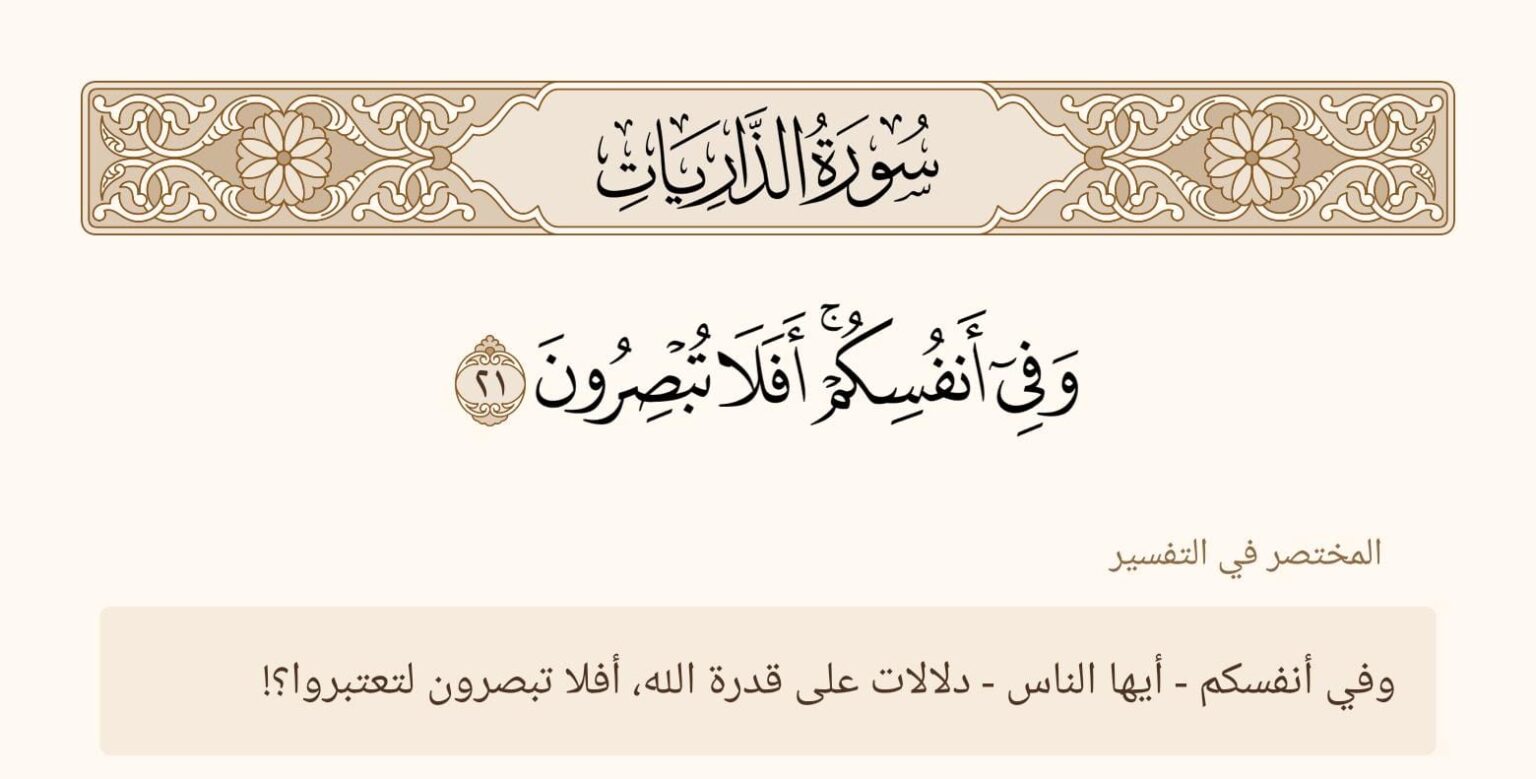 سُورَةُ الذَّارِيَاتِ
وَفِيٓ أَنفُسِكُمۡۚ أَفَلَا تُبۡصِرُونَ ٢١
المختصر في التفسير
وفي أنفسكم - أيها الناس - دلالات على قدرة الله، أفلا تبصرون لتعتبروا؟!